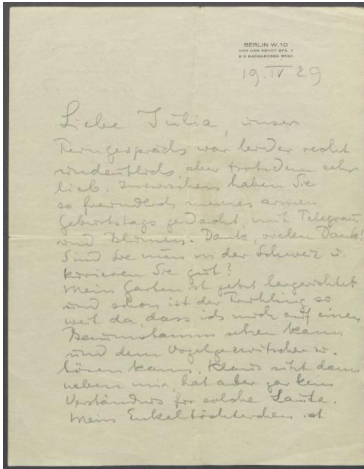 BERLIN W. 10
VON DER HEYDT STR.
19 IV 29
Liebe Julia, unser
Ferngespräch war leider recht
undeutlich, aber trotzdem sehr
lieb. Inzwischen haben Sie
so freundlich meines armen
Geburtstags gedacht, mit Telegramm
und Blumen. Dank, vielen Dank!
Sind Sie nun in der Schweiz u.
kurieren Sie gut!
Mein Garten ist jetzt hergerichtet
und schon ist der Frühling so
weit da, dass ich mich auf einen
Baumstamm setzen kann
und dem Vogelgezwitscher
kann. Klaus sitzt dann
neben mir, hat aber gar kein
Verständnis für solche Laute.
Mein Enkeltöchterchen ist